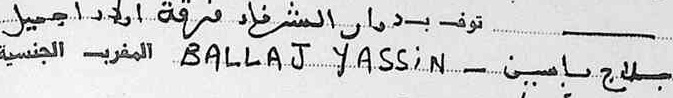 توفى بدوار الشرفاء فرقة اولاد اجميل
بلاج ياسين – BALLAJ YASSiN المغربي الجنسية